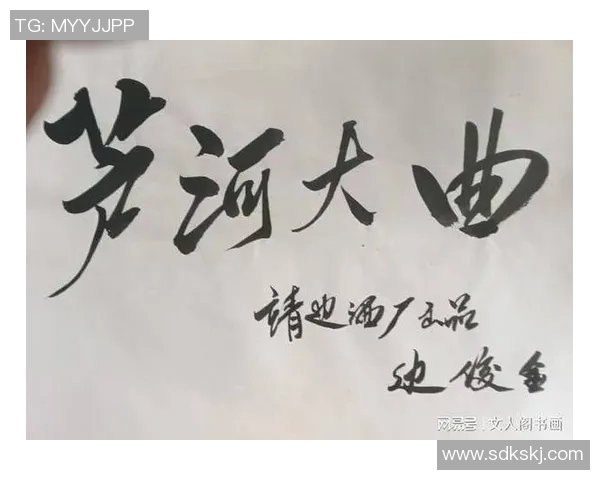 TG: MYYJJPP
芦河大曲
靖边酒厂出品
边俊金
网易号 | 文人阁书画
www.sdkskj.com